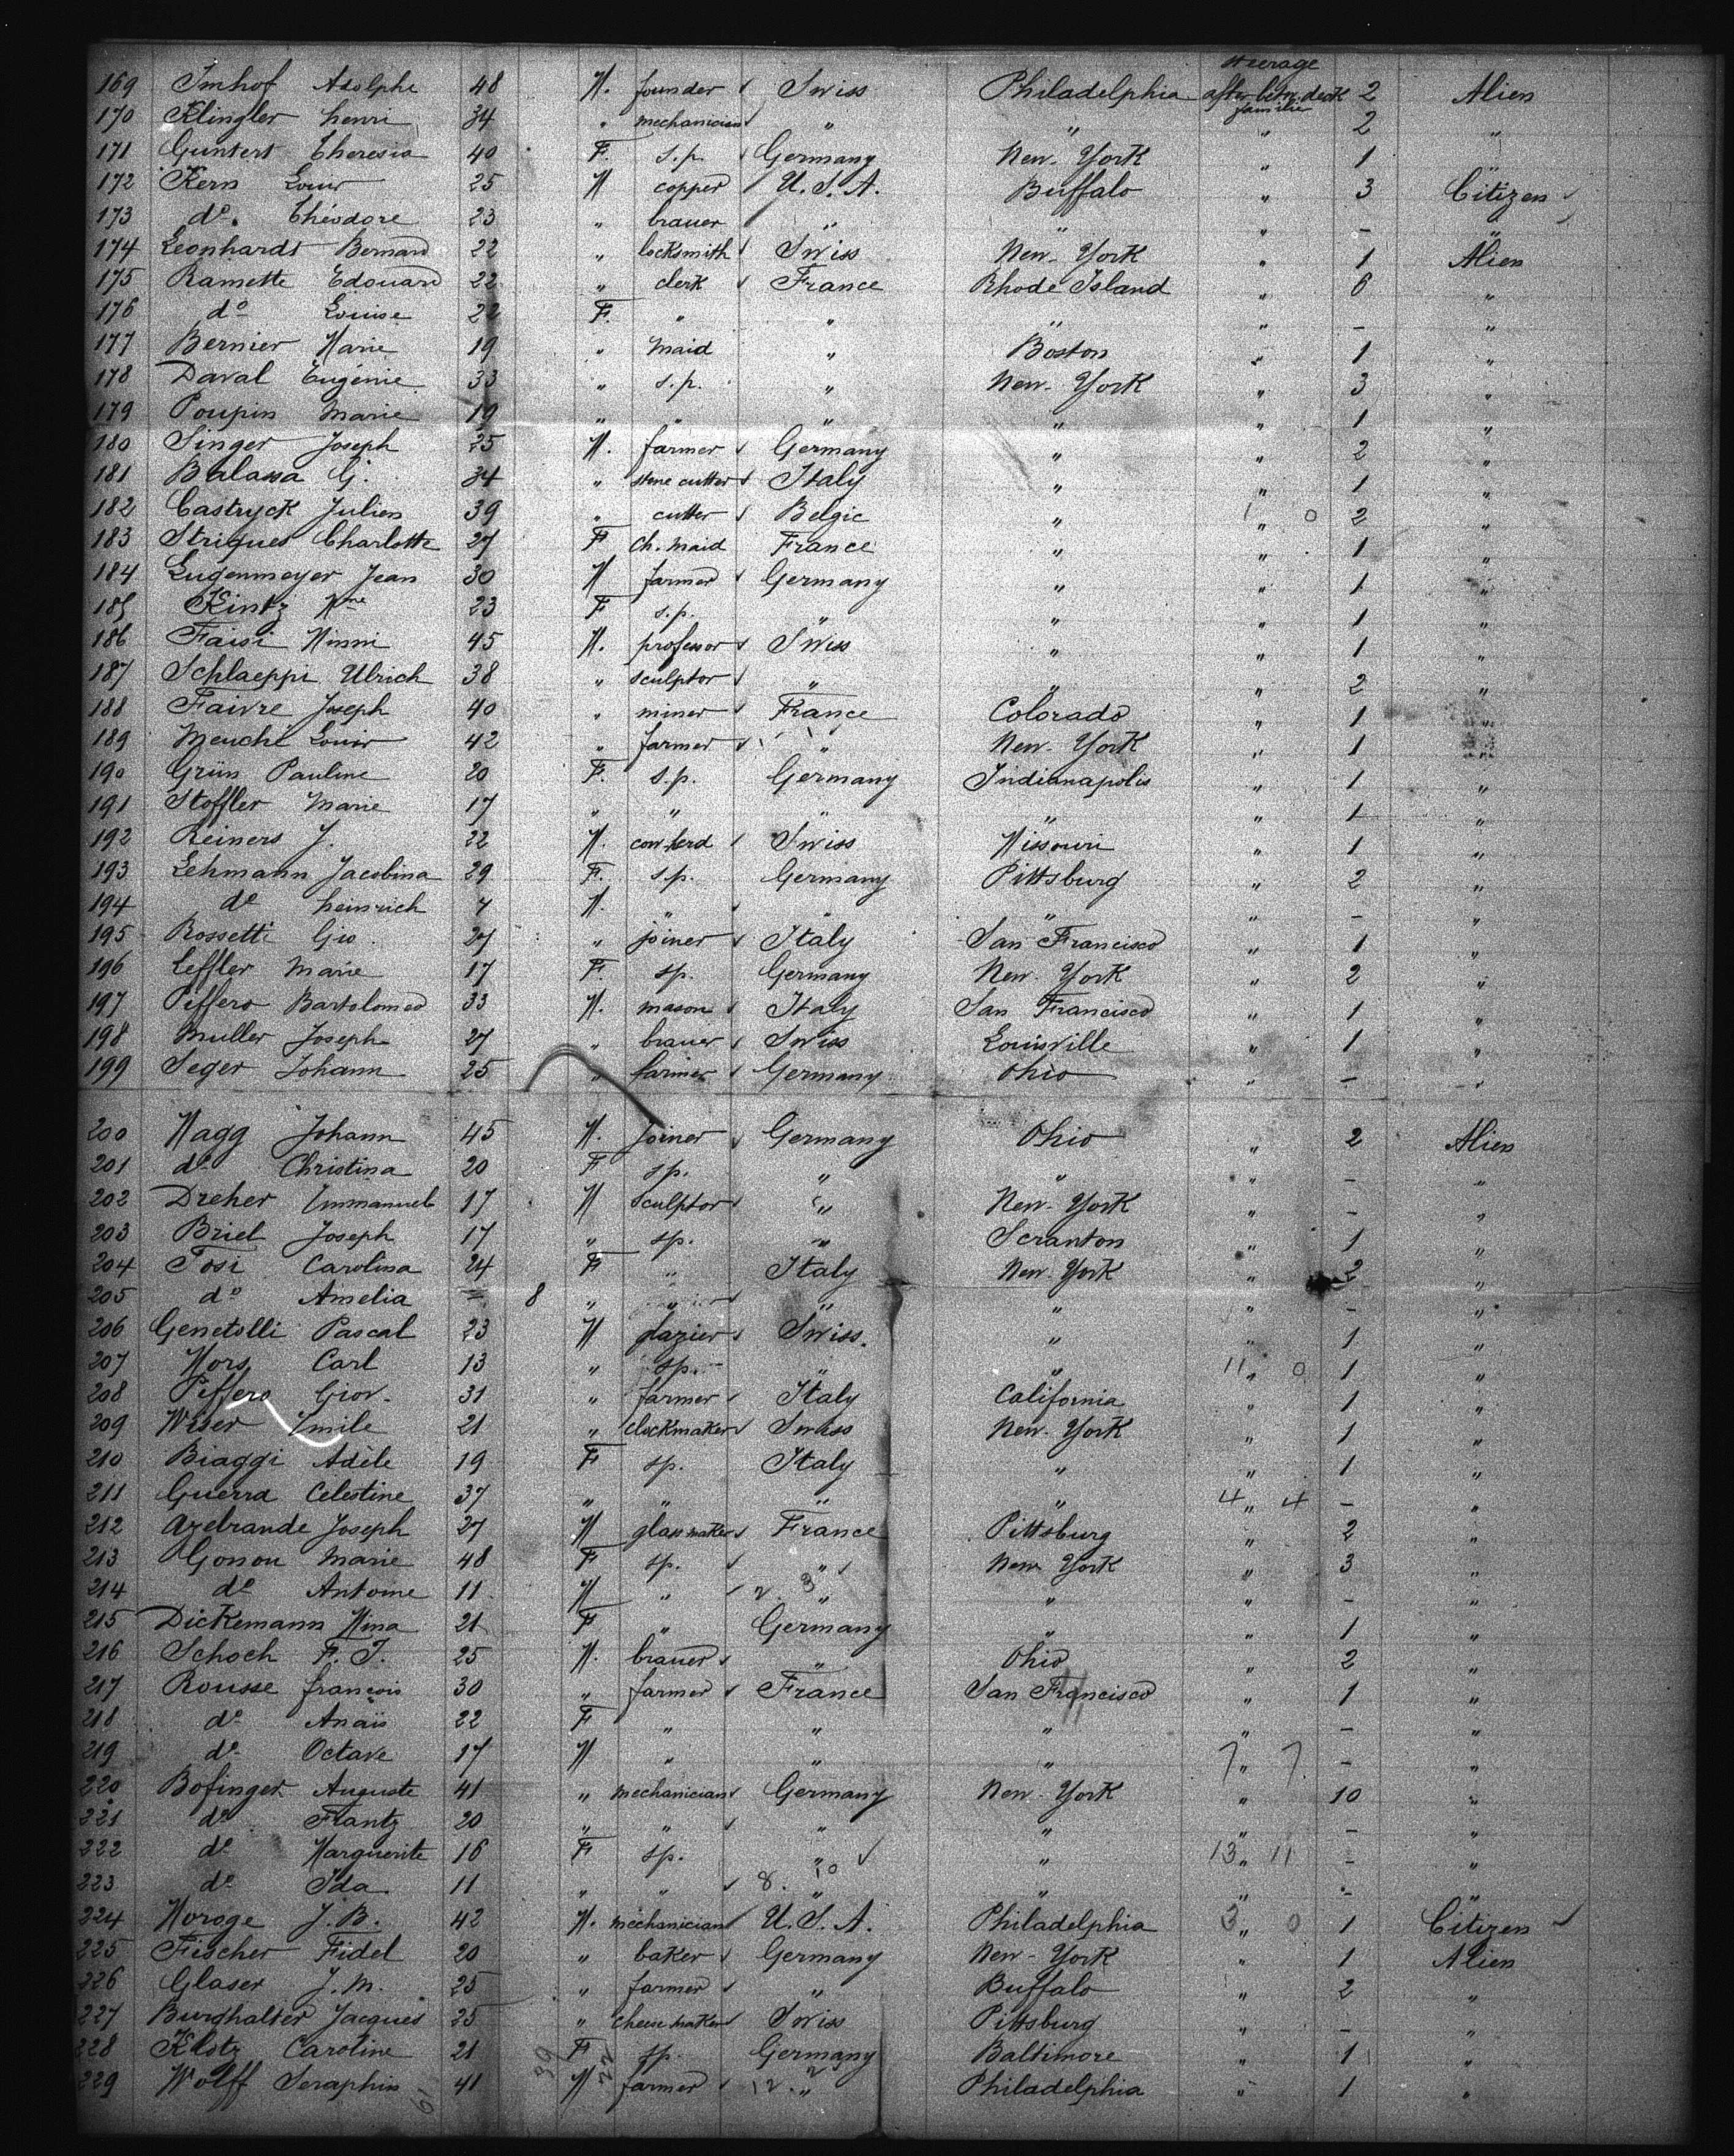 steerage
169 Imhof Adolphe 48 M. founder Swiss Philadelphia after betw. deck 2 Alien
familie
170 Klingler henri 34 " mechanician " " " 2 "
171 Guntert Theresia 40 F. s.p. Germany New-York " 1 "
172 Kern Louis 25 M copper U.S.A. Buffalo " 3 Citizen
173 do. Théodore 23 " brauer " " " - "
174 Leonhardt Bernard 22 " locksmith Swiss New-York " 1 Alien
175 Ramette Edouard 22 " clerk France Rhode Island " 6 "
176 do Louise 22 F. " " " " - "
177 Bernier Marie 19 " maid " Boston " 1 "
178 Daval Eugénie 33 " s.p. " New-York " 3 "
179 Poupin Marie 19 " " " " " 1 "
180 Singer Joseph 25 M. farmer Germany " " 2 "
181 Balassa G. 34 " stone cutter Italy " " 1 "
182 Castryck Julien 39 " cutter Belgic " 1 " 0 2 "
183 Striques Charlotte 27 F ch. maid France " " 1 "
184 Lugenmeyer Jean 30 M farmer Germany " " 1 "
185 Kintz Mme 23 F s.p. " " " 1 "
186 Faisi Mimi 45 M. professor Swiss " " 1 "
187 Schlaeppi Ulrich 38 " sculptor " " " 2 "
188 Faivre Joseph 40 " miner France Colorado " 1 "
189 Meuchl Louis 42 " farmer " New-York " 1 "
190 Grün Pauline 20 F. s.p. Germany Indianapolis " 1 "
191 Stoffler Marie 17 " " " " " 1 "
192 Reiners J. 22 M. cowherd Swiss Missouri " 1 "
193 Lehmann Jacobina 29 F. s.p. Germany Pittsburg " 2 "
194 do heinrich 7 M. " " " " - "
195 Rossetti Gio. 27 " joiner Italy San Francisco " 1 "
196 Leffler Marie 17 F. sp. Germany New-York " 2 "
197 Piffero Bartolomeo 33 M. mason Italy San Francisco " 1 "
198 Muller Joseph 27 " brauer Swiss Louisville " 1 "
199 Seger Johann 25 " farmer Germany Ohio " - "
200 Magg Johann 45 M. joiner Germany Ohio " 2 Alien
201 do Christina 20 F sp. " " " - "
202 Dreher Emmanuel 17 M sculptor " New-York " - "
203 Briel Joseph 17 " sp. " Scranton " 1 "
204 Tosi Carolina 24 F " Italy New-York " 2 "
205 do Amelia = 8 " " " " " - "
206 Genetolli Pascal 23 M glazier Swiss. " " 1 "
207 Mors Carl 13 " sp. " " 11 " 0 1 "
208 Piffero Giov. 31 " farmer Italy California " 1 "
209 Wiser Emile 21 " clockmaker Swiss New-York " 1 "
210 Biaggi Adèle 19 F sp. Italy " " 1 "
211 Guerra Celestine 37 " " " " 4 " 4 - "
212 Azebrande Joseph 27 M glasmaker France Pittsburg " 2 "
213 Gonon Marie 48 F sp. " New York " 3 "
214 do Antoine 11 M " 2 3 " " " - "
215 Dickemann Mina 21 F " Germany " " 1 "
216 Schoch F. J. 25 M. brauer " Ohio " 2 "
217 Rousse françois 30 " farmer France San Francisco " 1 "
218 do Anaïs 22 F " " " " - "
219 do Octave 17 M " " " 7 " 7 - "
220 Bofinger Auguste 41 " mechanician Germany New-York " 10 "
221 do Frantz 20 " " " " " - "
222 do Marguerite 16 F sp. " " 13 " 11 - "
223 do Ida 11 " " 8. 10 " " " - "
224 Moroge J. B. 42 M. mechanician U.S.A. Philadelphia 3 " 0 1 Citizen
225 Fischer Fidel 20 " baker Germany New-York " 1 Alien
226 Glaser J. M. 25 " farmer " Buffalo " 2 "
227 Burghalter Jacques 25 " cheese maker Swiss Pittsburg " - "
228 Klotz Caroline 21 39 F 22 sp. Germany Baltimore " 1 "
229 Wolff Seraphin 41 M farmer 12 " 2 Philadelphia " 1 "
61